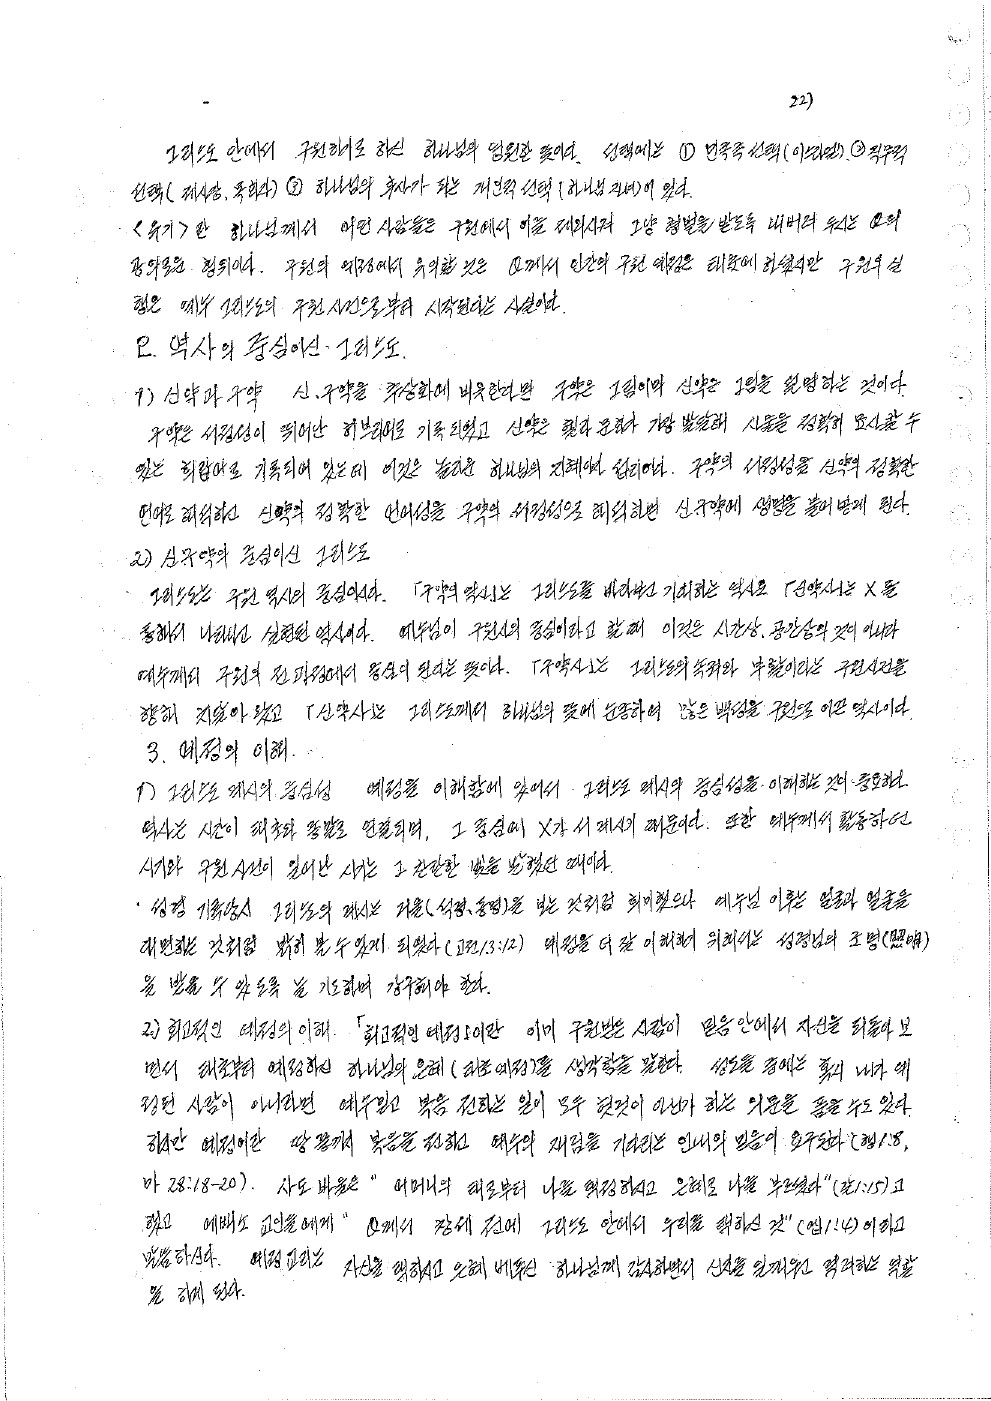 22)
그리스도 안에서 구원하기로 하신 하나님의 영원한 뜻이다. 선택에는 ① 민족적 선택(이스라엘) ② 직무적
선택( 제사장, 목회자) ③ 하나님의 후사가 되는 개인적 선택(하나님 자녀)이 있다.
<유기>란 하나님께서 어떤 사람들은 구원에서 이를 제외시켜 그냥 형벌을 받도록 내버려 두시는 Q의
공의로운 행위이다. 구원의 예정에서 유의할 것은 Q께서 인간의 구원 예정은 태초에 하셨지만 구원의 실
행은 예수 그리스도의 구원 사건으로부터 시작된다는 사실이다.
2. 역사의 중심이신 그리스도.
1) 신약과 구약 신.구약을 추상화에 비유한다면 구약은 그림이며 신약은 그림을 설명하는 것이다.
구약은 서정성이 뛰어난 히브리어로 기록되었고 신약은 헬라 문화가 가장 발달해 사물을 정확히 묘사할 수
있는 희랍어로 기록되어 있는데 이것은 놀라운 하나님의 지혜이며 섭리이다. 구약의 서정성을 신약의 정확한
언어로 해석하고 신약의 정확한 언어성을 구약의 서정성으로 해석하면 신구약에 생명을 불어넣게 된다.
2) 신구약의 중심이신 그리스도
그리스도는 구원 역사의 중심이시다. 「구약의 역사」는 그리스도를 바라보고 기대하는 역사로 「신약사」는 X를
통해서 나타나고 실현된 역사이다. 예수님이 구원사의 중심이라고 할 때 이것은 시간상, 공간상의 것이 아니라
예수께서 구원의 전 과정에서 중심이 된다는 뜻이다. 「구약사」는 그리스도의 속죄와 부활이라는 구원사건을
향해 치달아 왔고 「신약사」는 그리스도께서 하나님의 뜻에 순종하여 많은 백성을 구원으로 이끈 역사이다.
3. 예정의 이해.
1) 그리스도 계시의 중심성 예정을 이해함에 있어서 그리스도 계시의 중심성을 이해하는 것이 중요하다.
역사는 시간이 태초와 종말로 연결되며, 그 중심에 X가 서 계시기 때문이다. 또한 예수께서 활동하던
시기와 구원 사건이 일어난 시기는 그 찬란한 빛을 발했던 때이다.
· 성경 기록당시 그리스도의 계시는 거울(석경, 동경)을 보는 것처럼 희미했으나 예수님 이후는 얼굴과 얼굴을
대면하는 것처럼 밝히 볼 수 있게 되었다(고전13:12) 예정을 더 잘 이해하기 위해서는 성령님의 조명(照明)
을 받을 수 있도록 늘 기도하며 간구해야 한다.
2) 회고적인 예정의 이해. 「회고적인 예정」이란 이미 구원받은 사람이 믿음 안에서 자신을 뒤돌아 보
면서 태초부터 예정하신 하나님의 은혜(태초예정)를 생각함을 말한다. 성도들 중에는 혹시 내가 예
정된 사람이 아니라면 예수믿고 복음 전하는 일이 모두 헛것이 아닌가 하는 의문을 품을 수도 있다.
하지만 예정이란 땅 끝까지 복음을 전하고 예수의 재림을 기다리는 인내의 믿음이 요구된다(행1:8,
마 28:18-20). 사도 바울은 "어머니의 태로부터 나를 택정하시고 은혜로 나를 부르셨다"(갈1:15)고
했고 에베소 교인들에게 "Q께서 창세 전에 그리스도 안에서 우리를 택하신 것"(엡1:4)이라고
말씀하신다. 예정교리는 자신을 택하시고 은혜 베푸신 하나님께 감사하면서 신자를 일깨우고 격려하는 역할
을 하게 된다.